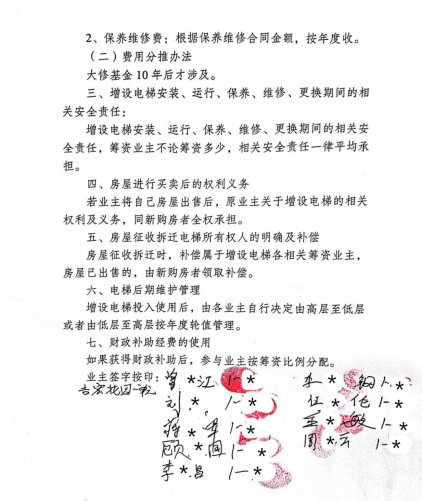 2、保养维修费：根据保养维修合同金额，按年度收。
（二）费用分推办法
大修基金10年后才涉及。
三、增设电梯安装、运行、保养、维修、更换期间的相
关安全责任：
增设电梯安装、运行、保养、维修、更换期间的相关安
全责任，筹资业主不论筹资多少，相关安全责任一律平均承
担。
四、房屋进行买卖后的权利义务
若业主将自己房屋出售后，原业主关于增设电梯的相关
权利及义务，同新购房者全权承担。
五、房屋征收拆迁电梯所有权人的明确及补偿
房屋征收拆迁时，补偿属于增设电梯各相关筹资业主，
房屋已出售的，由新购房者领取补偿。
六、电梯后期维护管理
增设电梯投入使用后，由各业主自行决定由高层至低层
或者由低层至高层按年度轮值管理。
七、财政补助经费的使用
如果获得财政补助后，参与业主按筹资比例分配。
业主签字按印：曾*江 1-* 李*钢 1-*
刘* 1-* 伍*伦 1-*
蒋*军 1-* 王*敏 1-*
顾*国 1-* 周*云 1-*
李*昌 1-*